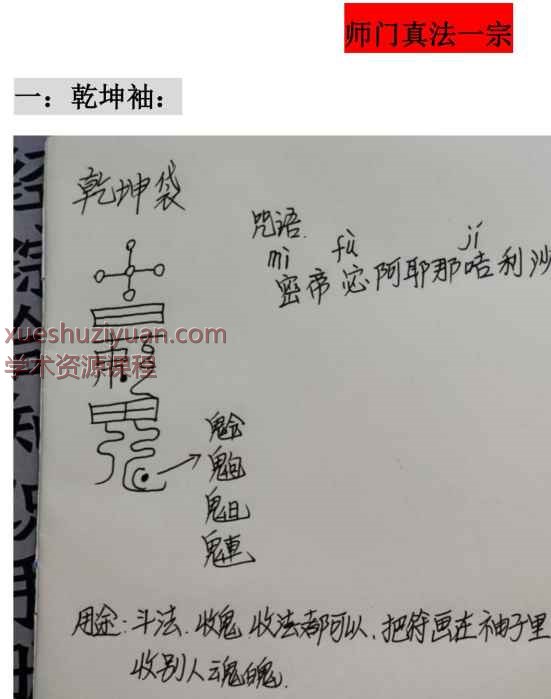 师门真法一宗
一：乾坤袖：
乾坤袋
咒语.
mì fú jí
密帝 阿耶那咭利沙
xueshuziyuan.com
学术资源课程
用途：斗法.收鬼 收法都可以.把符画在袖子里
收别人魂魄.